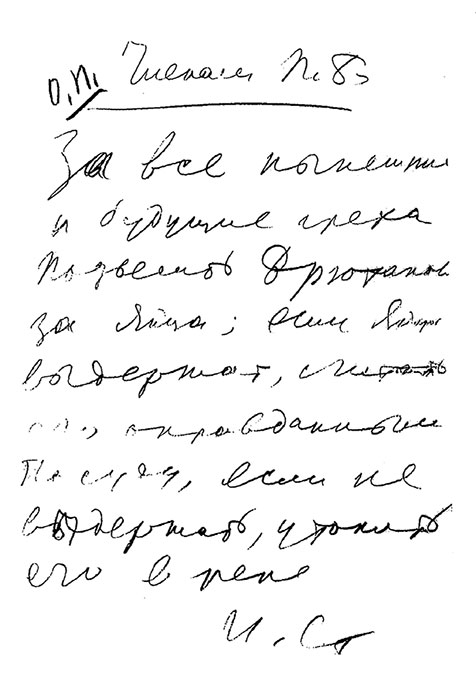 О.П. Членам П.Б.
За все нынешние
и будущие грехи
подвесить Брюханова
за яйца; если яйца
выдержат, считать
его оправданным
по суду, если не
выдержат, утопить
его в реке
И. Ст